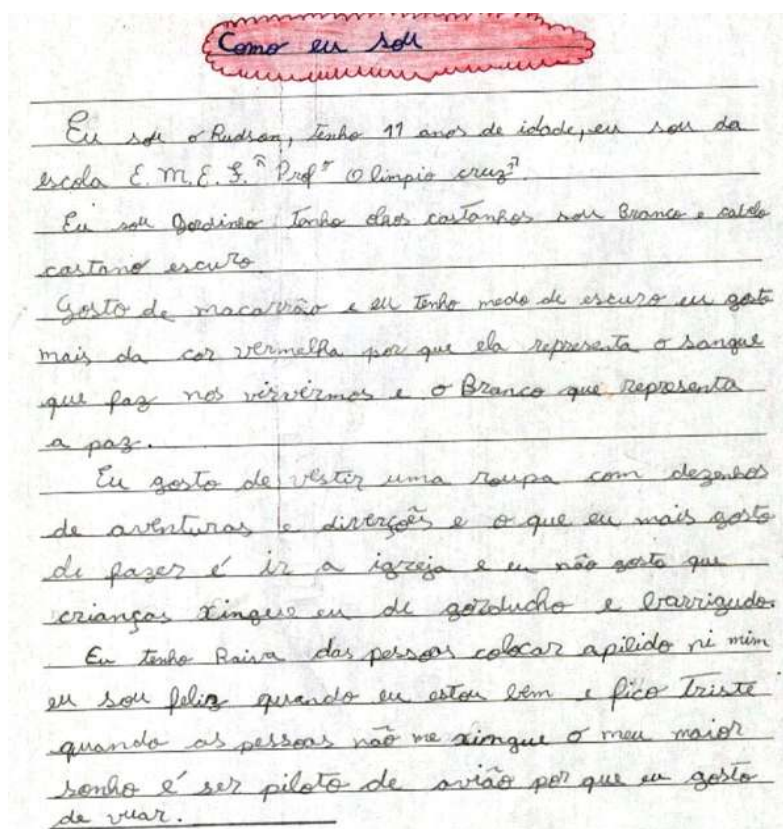 Como eu sou
Eu sou o Rudson, tenho 11 anos de idade, eu sou da
escola E.M.E.F. "Profº Olimpio cruz"
Eu sou Gordinho Tenho olhos castanhos sou Branco e cabelo
castano escuro
Gosto de macarrão e eu tenho medo de escuro eu gosto
mais da cor vermelha por que ela representa o sangue
que faz nos vivermos e o Branco que representa
a paz.
Eu gosto de vestir uma roupa com dezenhos
de aventuras e diverções e o que eu mais gosto
de fazer é ir a igreja e eu não gosto que
crianças xingue eu de gorducho e barrigudo.
Eu tenho Raiva das pessoas colocar apilido ni mim
eu sou feliz quando eu estou bem e fico triste
quando as pessoas não me xingue o meu maior
sonho é ser piloto de avião por que eu gosto
de vuar.